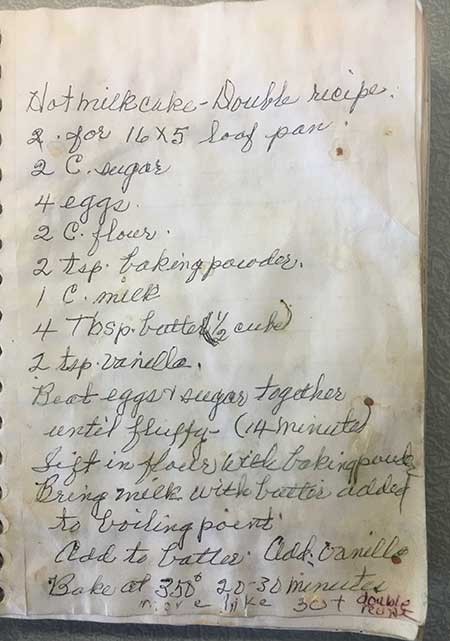 Hot milk cake - Double recipe.
2 for 16 X 5 loaf pan.
2 C. sugar
4 eggs.
2 C. flour.
2 tsp. baking powder.
1 C. milk
4 Tbsp. butter (½ cube)
2 tsp. vanilla.
Beat eggs & sugar together
until fluffy - (14 minutes)
Sift in flour with baking powder
Bring milk with butter added
to boiling point
Add to batter. Add vanilla
Bake at 350° 20-30 minutes
more like 30+ double